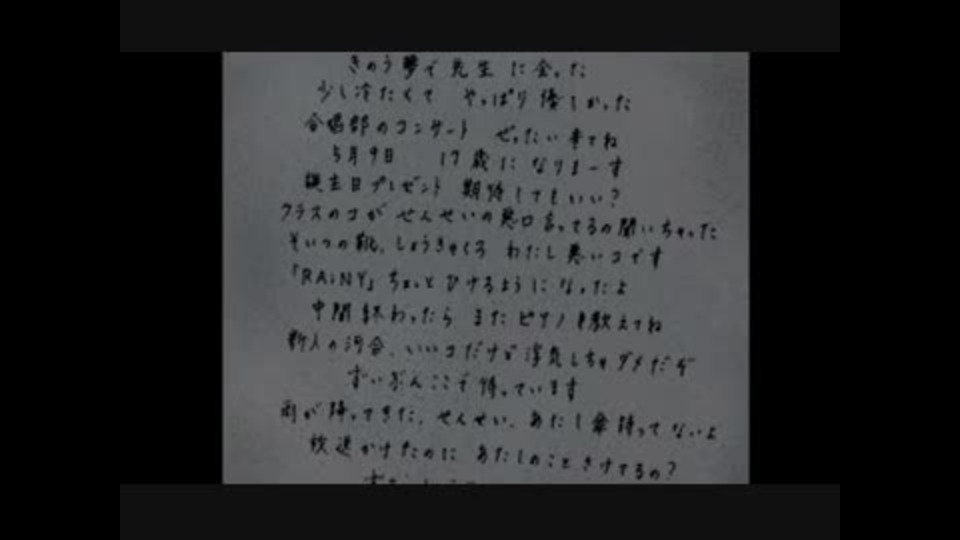 きのう夢で 先生 に会った
少し冷たくて やっぱり優しかった
合唱部のコンサート ぜったい来てね
5月9日 17歳になりまーす
誕生日プレゼント 期待してもいい?
クラスのコが せんせいの悪口言ってるの聞いちゃった
そいつの靴、しょうきゃくろ わたし悪いコです
「RAiNY」ちょっとひけるようになったよ
中間終わったら またピアノを教えてね
新人の河合、いいコだけど浮気しちゃダメだぞ
ずいぶんここで待っています
雨が降ってきた。せんせい、あたし傘持ってないよ
放送かけたのに あたしのことさけてるの?